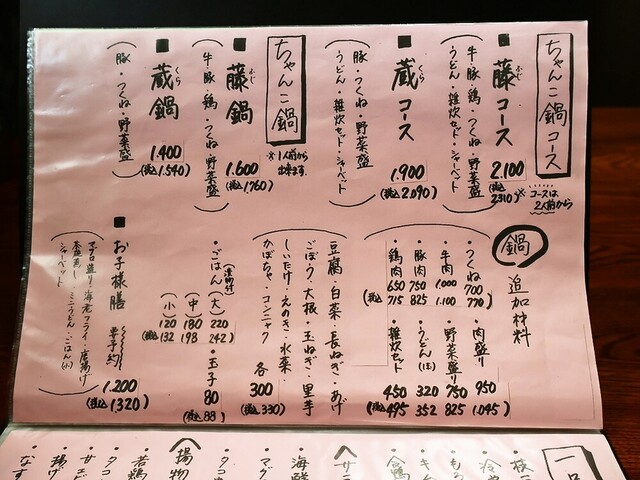 ちゃんこ鍋コース
■藤コース
ふじ
2.100
(税込2310)
(牛・豚・鶏・つくね・野菜盛
うどん・雑炊セット・シャーベット)
※コースは
2人前から
■蔵コース
くら
1.900
(税込2.090)
(豚・つくね・野菜盛
うどん・雑炊セット・シャーベット)
ちゃんこ鍋
※1人前から
出来ます。
■藤鍋
ふじ
1.600
(税込1.760)
(牛・豚・鶏・つくね・野菜盛)
■蔵鍋
くら
1.400
(税込1.540)
(豚・つくね・野菜盛)
鍋 追加材料
・つくね 700 770
・牛肉 1.000 1.100
・豚肉 750 825
・鶏肉 650 (税込715
・肉盛り 950 1.045)
・野菜盛り 750 825
・うどん(玉) 320 352
・雑炊セット 450 (税込495
豆腐・白菜・長ねぎ・あげ
ごぼう・大根・玉ねぎ・里芋
しいたけ・えのき・水菜・
かぼちゃ・コンニャク
各300
(税込330)
・ごはん(漬物付)
(大) 220 242)
(中) 180 198
(小) 120 (税込132
・玉子 80
(税込88)
■お子様膳 要予約
1.200
(税込1.320)
(マグロ盛り・海老フライ・唐揚げ
茶碗蒸し・ミニうどん・ごはん(小)
シャーベット)
一品
・枝
・冷や
・もろ
・キム
・鶏
サ
・海鮮
・マグ
・タコ
揚物
・若鶏
・タコ
・甘エビ
・揚げ
・なす